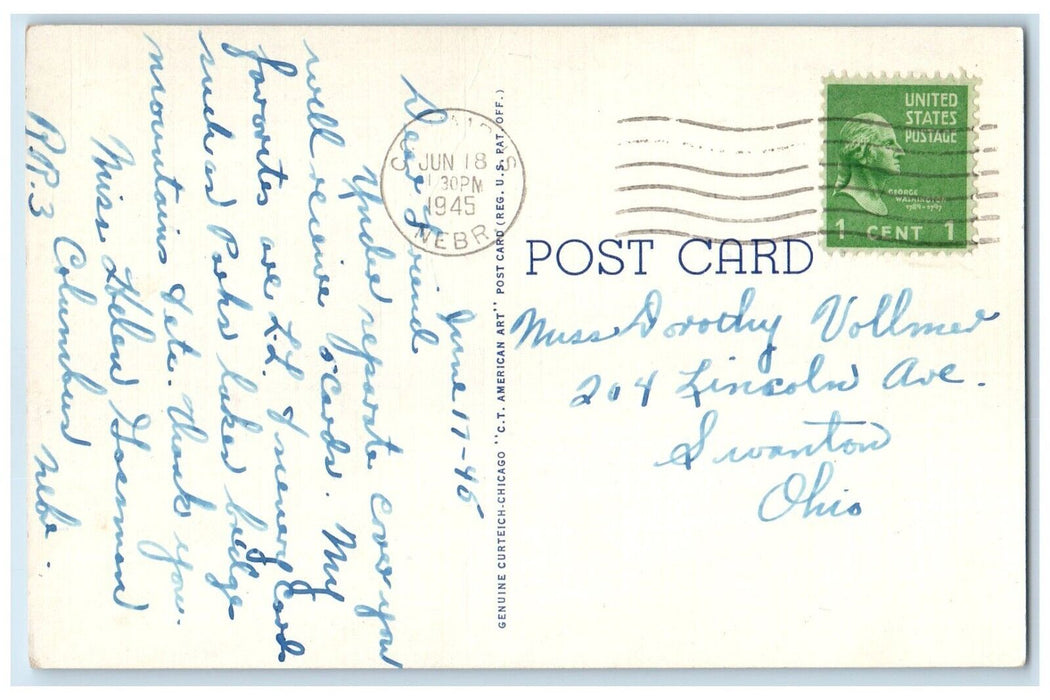 June 17-45
Dear Friend
Under separate cover you
will receive 5 cards. My
favorites are L.L. & scenery cards
such as Parks lakes bridge
mountains & etc. Thank you.
Miss Helen
R.R. 3 Columbus Nebr.
GENUINE CURTEICH-CHICAGO "C.T. AMERICAN ART" POST CARD (REG. U.S. PAT. OFF.)
COLUMBUS
JUN 18
1 30PM
1945
NEBR
UNITED
STATES
POSTAGE
GEORGE
WASHINGTON
1789-1797
1 CENT 1
POST CARD
Miss Dorothy Vollmer
204 Lincoln Ave.
Swanton
Ohio